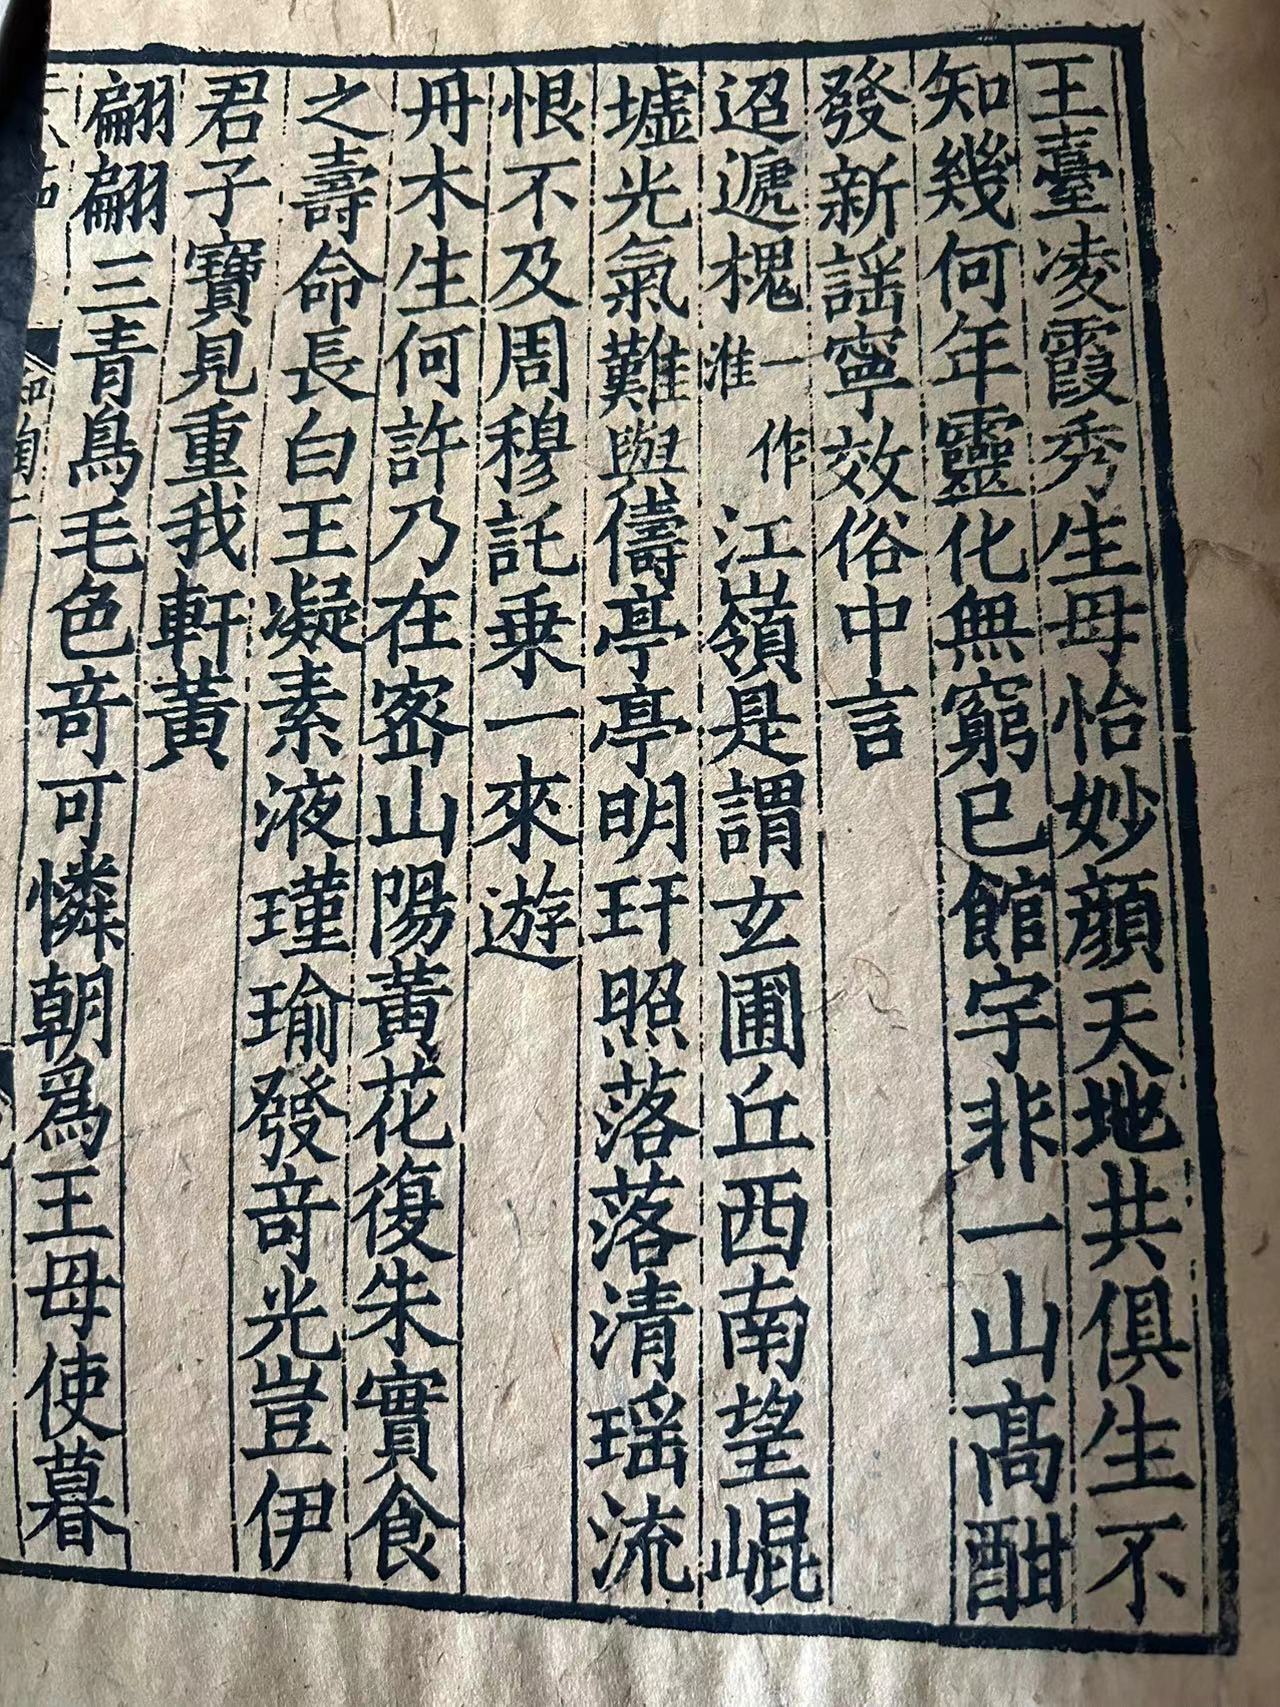 王臺凌霞秀生母怡妙顔天地共俱生不
知幾何年靈化無窮已館宇非一山高酣
發新謡寧效俗中言
迢遞槐一作淮江嶺是謂玄圃丘西南望崐
墟光氣難與儔亭亭明玕照落落清瑶流
恨不及周穆託乗一來遊
丹木生何許乃在宻山陽黃花復朱實食
之壽命長白王凝素液瑾瑜發竒光豈伊
君子寶見重我軒黃
翩翩三青鳥毛色竒可憐朝爲王母使暮